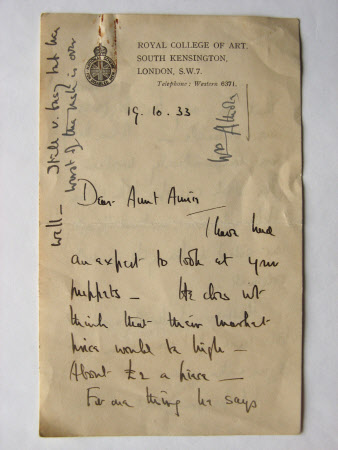 ROYAL COLLEGE OF ART,
SOUTH KENSINGTON,
LONDON, S.W.7.
Telephone: Western 6371.
19. 10. 33
Dear Aunt
I have had
an expert to look at your
puppets – He does not
think that their market
price would be high –
About £2 a piece –
For one thing he says
well – Still v. busy but the
worst of the rush is over